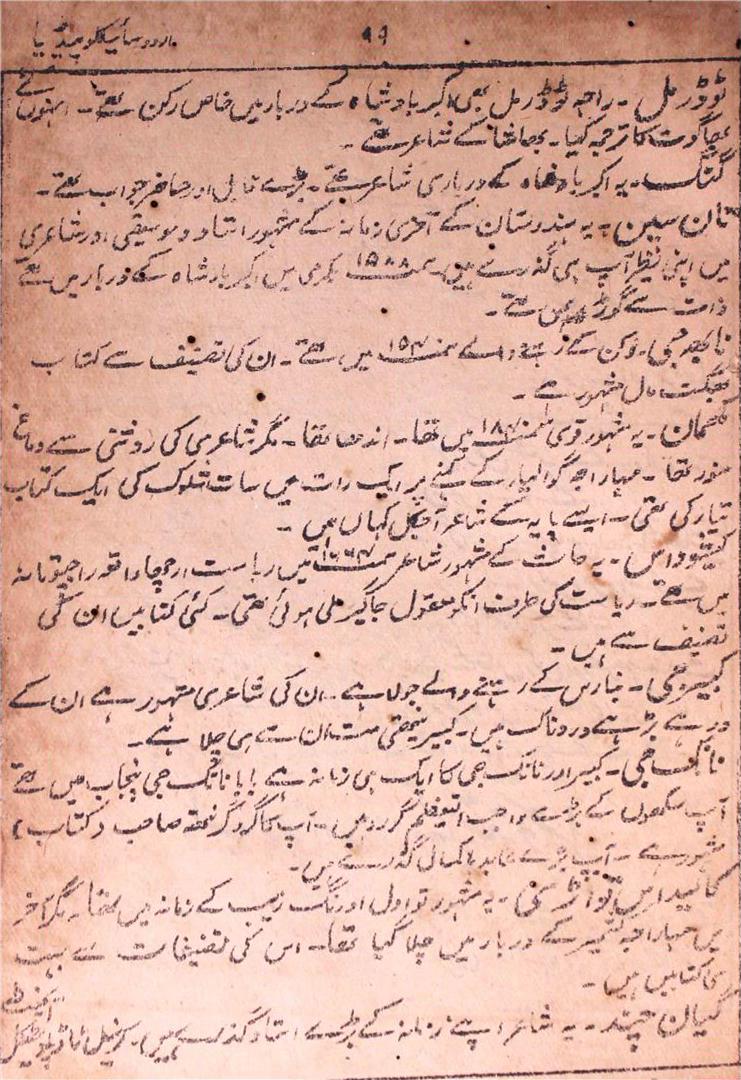 اردو سائیکلوپیڈیا ۹۹
ٹوڈرمل۔ راجہ ٹوڈرمل بھی اکبر بادشاہ کے دربار میں خاص رکن تھے۔ انہوں نے
بھاگوت کا ترجمہ کیا۔ بھاشا کے شاعر تھے۔
گنگ۔ یہ اکبر بادشاہ کے درباری شاعر تھے۔ بڑے قابل اور حاضر جواب تھے۔
تان سین۔ یہ ہندوستان کے آخری زمانہ کے مشہور استاد و موسیقی اور شاعری
میں اپنی نظیر آپ ہی گذرے ہیں۔ سمت ۱۵۸۸ بکرمی میں اکبر بادشاہ کے دربار میں تھے
ذات سے گوڑ تھے۔
نابھہ جی۔ دکن کے رہنے والے سمت میں تھے۔ ان کی تصنیف سے کتاب
بھگت مال مشہور ہے۔
یہ مشہور قوی سمت میں تھا۔ اندھا تھا۔ مگر شاعری کی روشنی سے دماغ
منور تھا۔ مہاراجہ گوالیار کے کہنے پر ایک رات میں سات شلوک کی ایک کتاب
تیار کی تھی۔ ایسے پایہ کے شاعر آجکل کہاں ہیں۔
کیشوداس۔ یہ بھاشا کے مشہور شاعر سمت میں ریاست ارچھا واقع راجپوتانہ
میں تھے۔ ریاست کی طرف انکو معقول جاگیر ملی ہوئی تھی۔ کئی کتابیں ان کی
تصنیف سے ہیں۔
کبیر جی۔ بنارس کے رہنے والے جولاہے۔ ان کی شاعری مشہور ہے ان کے
دوہے بڑے دردناک ہیں۔ کبیر پنتھی مت ان سے ہی چلا ہے۔
نانک جی۔ کبیر اور نانک جی کا ایک ہی زمانہ ہے بابا نانک جی پنجاب میں تھے
آپ سکھوں کے بڑے واجب التعظیم گرو ہیں۔ آپ کا گرو گرنتھ صاحب (کتاب)
مشہور ہے۔ آپ بڑے عابد باکمال گذرے ہیں۔
کالیداس یہ مشہور تو اول اورنگ زیب کے زمانہ میں تھا۔ مگر آخر
میں مہاراجہ کے دربار میں چلا گیا تھا۔ اس کی تصنیفات سے بہت
سی کتابیں ہیں۔
گیان چند۔ یہ شاعر اپنے زمانہ کے بڑے استاد گذرے ہیں۔ کرنیل ٹاڈ